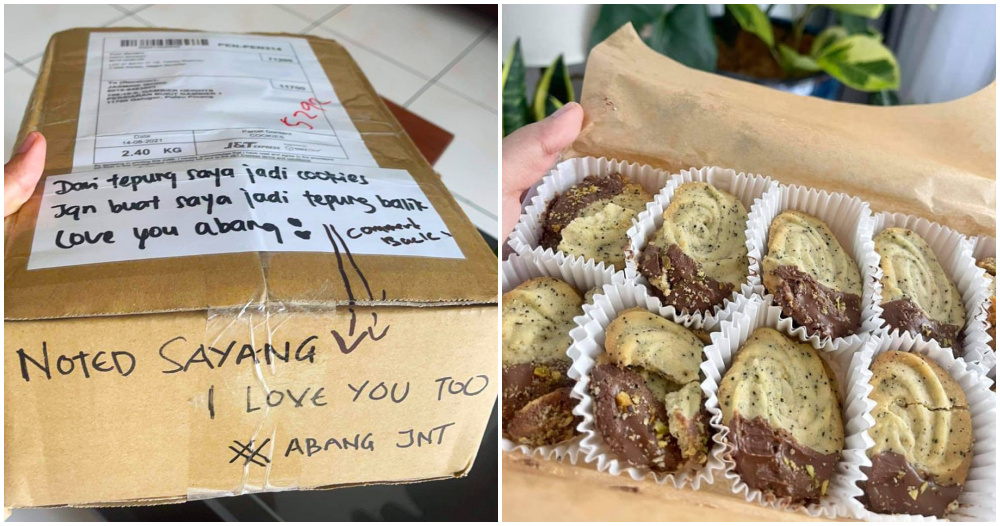 PEN-PEN214
11700
5292
Date
Parcel Content
14-08-2021
COOKIES
2.40 KG
J&T EXPRESS
Dari tepung saya jadi cookies
Jgn buat saya jadi tepung balik
Love you abang
Comment Back
NOTED SAYANG
I LOVE YOU TOO
ABANG JNT